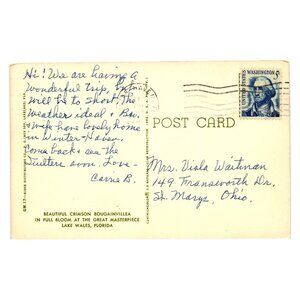 Hi! We are having a
wonderful trip,
will be to short. The
weather ideal. Bro. +
wife have lovely home
in Winter-Haven.
come back + see the
sisters soon. Love-
Carrie B.
BEAUTIFUL CRIMSON BOUGAINVILLEA
IN FULL BLOOM AT THE GREAT MASTERPIECE
LAKE WALES, FLORIDA
POST CARD
WASHINGTON 5
UNITED STATES
Mrs. Viola Waitman
149 Transworth Dr.
St. Marys, Ohio.